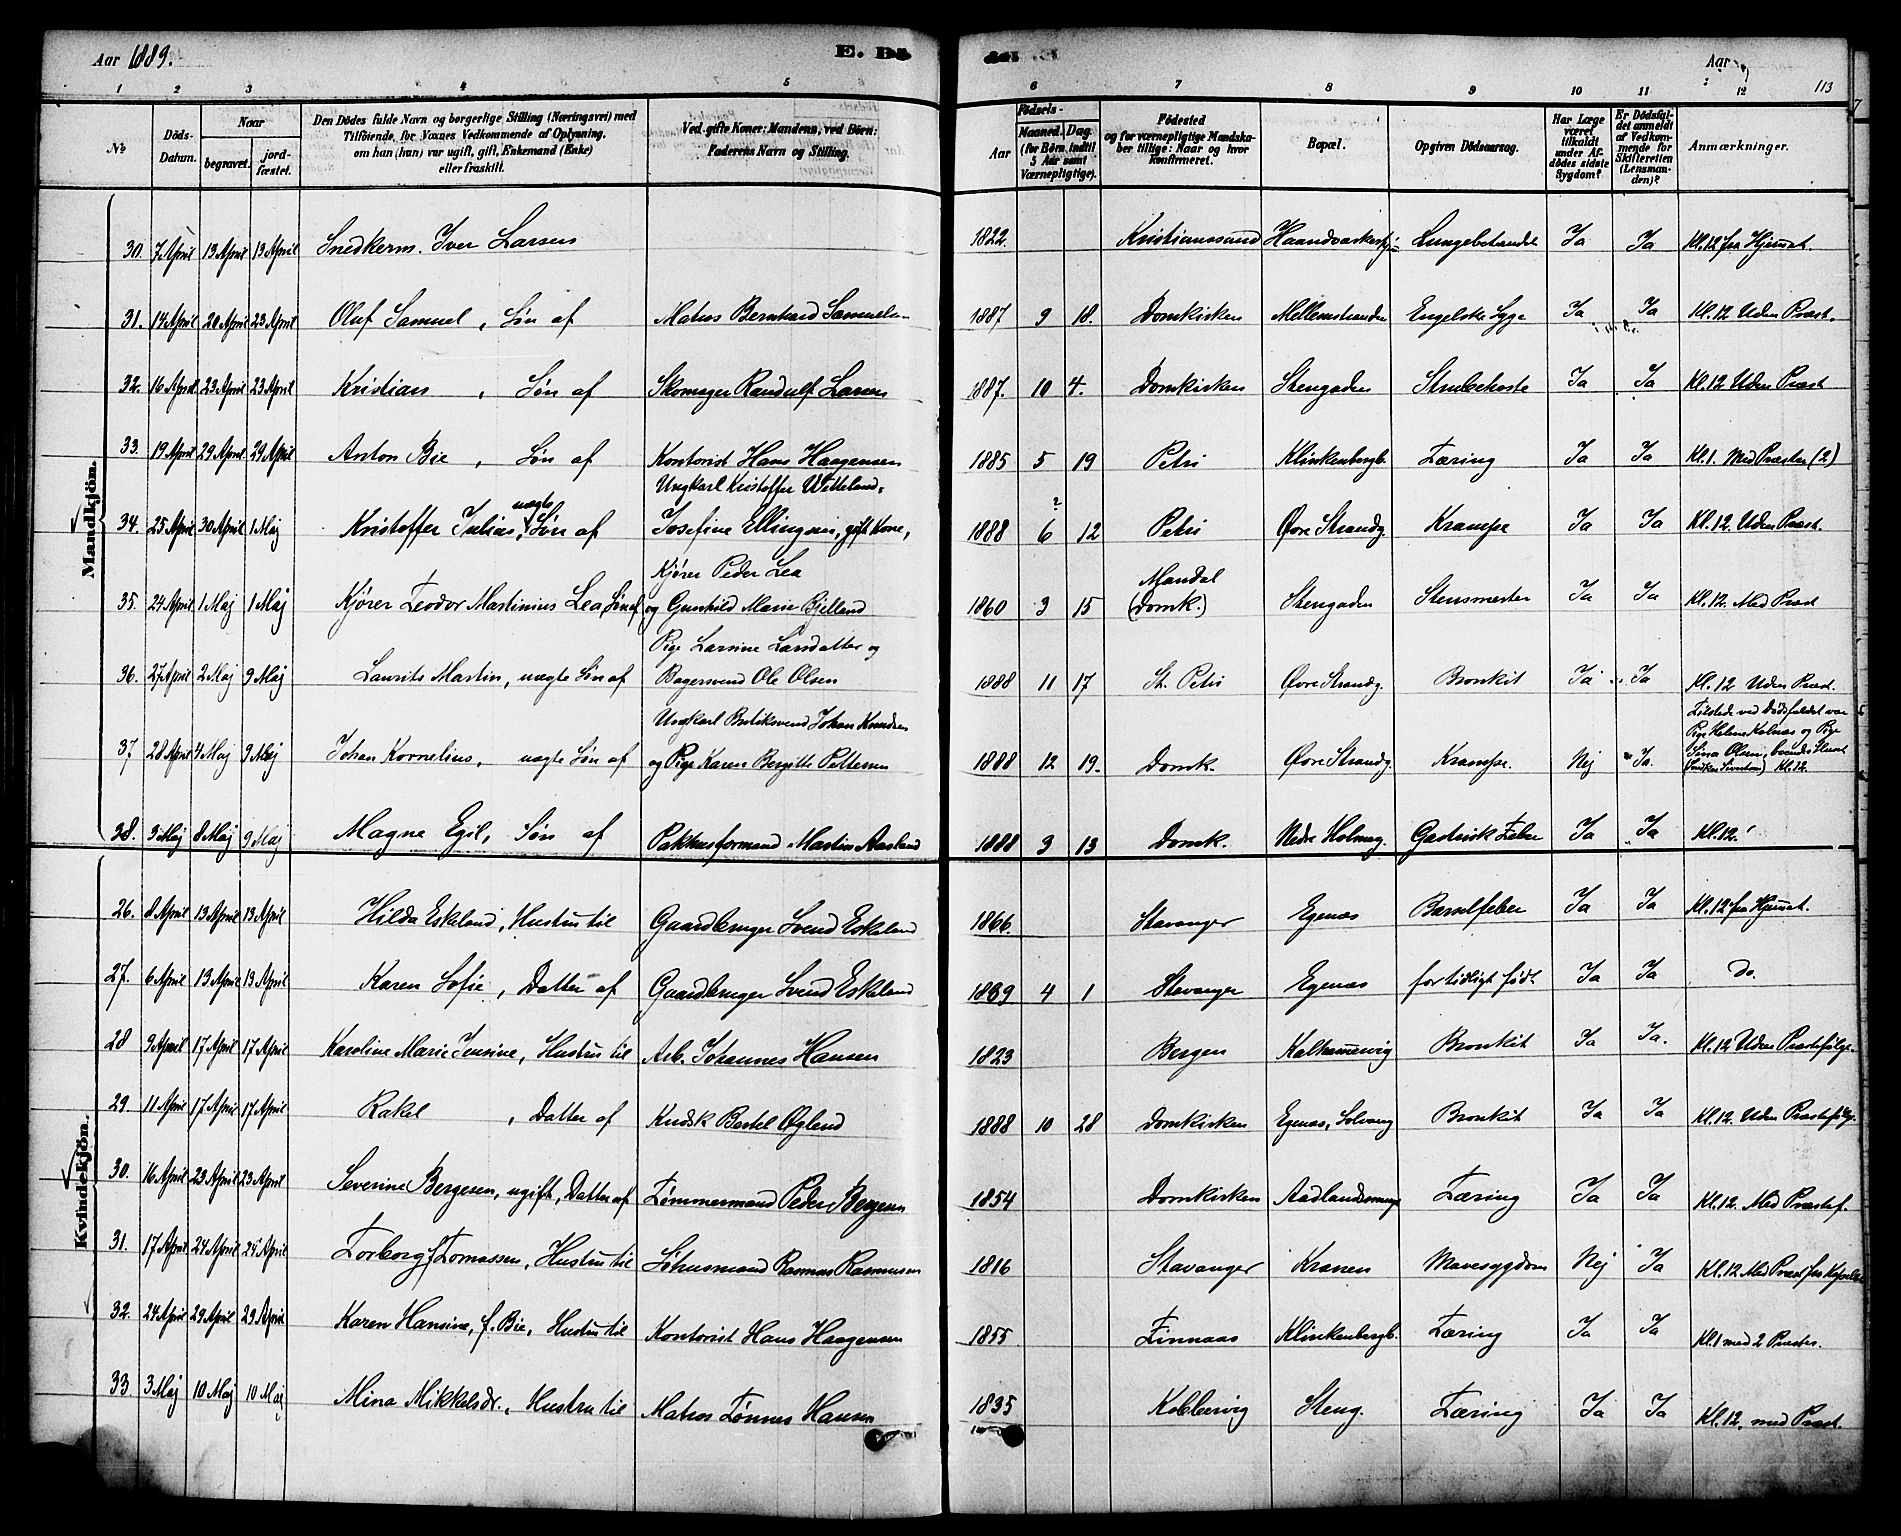 Aar 1889.
E. Dö
Aar
113
1 2 3 4 5 6 7 8 9 10 11 12
No
Döds-Datum.
Naar
begravet.
jord-fæstet.
Den Dödes fulde Navn og borgerlige Stilling (Næringsvei) med Tilföiende, for Voxnes Vedkommende af Oplysning, om han (hun) var ugift, gift, Enkemand (Enke) eller fraskilt.
Ved gifte Koner: Mandens, ved Börn: Faderens Navn og Stilling.
Födsels-
Aar
Maaned. Dag.
(for Börn indtil 5 Aar samt Værnepligtige).
Födested og for værnepligtige Mandskaber tillige: Naar og hvor Konfirmeret.
Bopæl.
Opgiven Dödsaarsag.
Har Læge været tilkaldt under Afdödes sidste Sygdom?
Er Dödsfaldet anmeldt af Vedkommende for Skifteretten (Lensmanden)?
Anmærkninger.
Mandkjön.
30. 7 April 13 April 13 April Snedkerm. Iver Larsen 1822. Kristianssund Lungebetændt Ja Ja Kl. 12 fra Hjemmet.
31. 14 April 20 April 23 April Oluf Samuel, Søn af Matros Bernhard Samuelsen 1887 9 18. Domkirken Mellemstranden Engelske Syge Ja Ja Kl. 12 Uden Præst.
32. 16 April 23 April 23 April Kristian, Søn af Skomager Randulf Larsen 1887. 10 4. Domkirken Stengaden Strubehoste Ja Ja Kl. 12 Uden Præst
33. 19 April 29 April 29 April Anton Bie, Søn af Kontorist Hans Haagensen 1885 5 19 Petri Klinkenbergb. Tæring Ja Ja Kl. 1. Med Præster (2)
Ungkarl Kristoffer Vetteland,
34. 25 April 30 April 1 Maj Kristoffer Julius, uægte Søn af Josefine Ellingsen, gift Kone, 1888 6 12 Petri Øvre Strandg. Krampe Ja Ja Kl. 12. Uden Præst.
Kjører Peder Lea
35. 24 April 1 Maj 1 Maj Kjører Teodor Martinius Lea Søn af og Gunhild Marie Bjelland 1860 3 15 Mandal (Domk.) Stengaden Ja Ja Kl. 12. Med Præst
Pige Larsine Larsdatter og
36. 27 April 2 Maj 9 Maj Laurits Martin, uægte Søn af Bagersvend Ole Olsen 1888 11 17 St. Petri Øvre Strandg. Bronkit Ja Ja Kl. 12 Uden Præst.
Ungkarl Butiksvend Johan Knudsen
37 28 April 4 Maj 9 Maj Johan Kornelius, uægte Søn af og Pige Karen Bergitte Pettersen 1888 12 19. Domk. Øvre Strandg. Krampe. Nej Ja. Tilstede ved Dødsfaldet var Pige Helene Kolnes og Pige Sina Olsen, Kl. 12.
38. 3 Maj 8 Maj 9 Maj Magne Egil, Søn af Pakhusformand Martin Aasland 1888 3 13 Domk. Nedre Holmeg. Gastrisk Feber Ja Ja Kl. 12.
Kvindekjön.
26. 8 April 13 April 13 April Hilda Eskeland, Hustru til Gaardbruger Svend Eskeland 1866. Stavanger Egenæs Barselfeber Ja Ja Kl. 12 fra Hjemmet.
27. 6 April 13 April 13 April Karen Sofie, Datter af Gaardbruger Svend Eskeland 1889 4 1 Stavanger Egenæs for tidligt født Ja Ja do.
28 9 April 17 April 17 April Karoline Marie Jensine, Hustru til Arb. Johannes Hansen 1823 Bergen Kalhammervig Bronkit Ja Ja. Kl. 12 Uden Præstefølge.
29. 11 April 17 April 17 April Rakel, Datter af Kndsk Bertel Øglend 1888 10 28 Domkirken Egenæs, Solvang Bronkit Ja Ja Kl. 12. Uden Præstefølge
30. 16 April 23 April 23 April Severine Bergesen, ugift, Datter af Tømmermand Peder Bergesen 1854 Domkirken Tæring Ja Ja Kl. 12. Med Præstef.
31. 17 April 24 April 24 April Torborg f. Tomassen, Hustru til Rasmus Rasmussen 1816 Stavanger Kranen Mavesygdom Nej Ja Kl. 12. Med Præst fra Kapellet
32. 24 April 29 April 29 April Karen Hansine, f. Bie, Hustru til Kontorist Hans Haagensen 1855 Finnaas Klinkenbergb. Tæring Ja Ja Kl. 1 med 2 Præster.
33. 3 Maj 10 Maj 10 Maj Mina Mikkelsdr., Hustru til Matros Tønnes Hansen 1835 Kobbervig Steng. Tæring Ja Ja Kl. 12. med Præst.